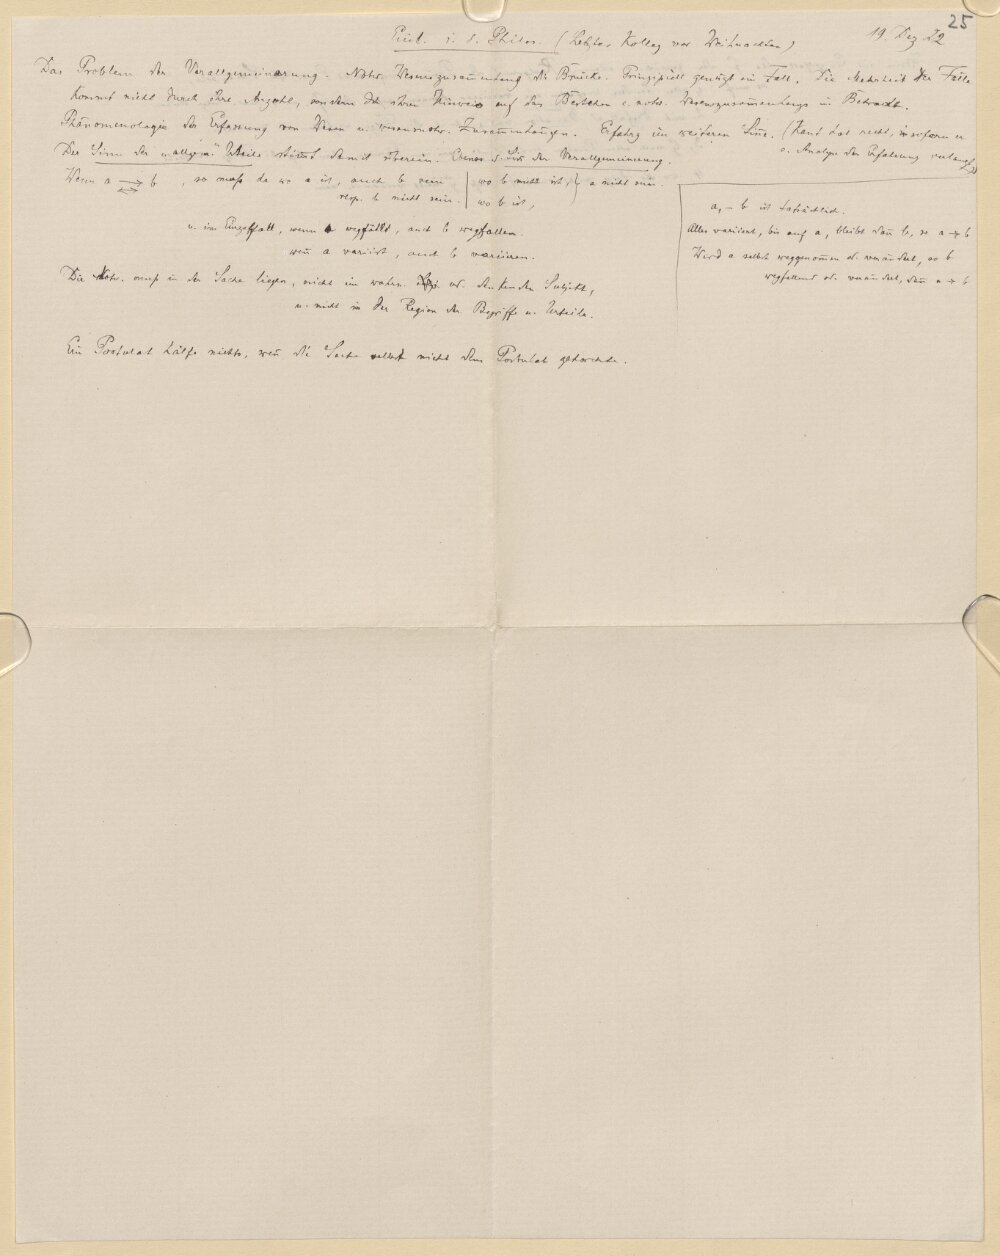 25
Einl. i. d. Philos. (Letztes Kolleg vor Weihnachten) 19. Dez 22
Das Problem der Verallgemeinerung. Notw. Wesenszusammenhang die Brücke. Prinzipiell genügt ein Fall. Die Mehrheit der Fälle
kommt nicht durch ihre Anzahl, sondern durch ihren Hinweis auf das Bestehen e. notw. Wesenszusammenhangs in Betracht.
Phänomenologie der Erfassung von Wesen u. wesensnotw. Zusammenhängen. Erfahrg im weiteren Sinne. (Kant hat recht, insofern er
e. Analyse der Erfahrung verlangt)
Der Sinn der „allgem." Urteile stimmt damit überein. Ebenso d. Sinn der Verallgemeinerung.
Wenn a → b, so muß da wo a ist, auch b sein | wo b nicht ist, } a nicht sein.
resp. b nicht sein. | wo b ist,
u. im Einzelfall, wenn a wegfällt, auch b wegfallen.
wenn a variiert, auch b variieren.
a, – b ist tatsächlich.
Alles variiert, bis auf a, bleibt dann b, so a → b
Wird a selbst weggenommen od. verändert, so b
wegfallend od. verändert, dann a → b
Die Notw. muß in der Sache liegen, nicht im wahrn. od. denkenden Subjekt,
u. nicht in der Region der Begriffe u. Urteile.
Ein Postulat hälfe nichts, wenn die Sache selbst nicht dem Postulat gehorchte.